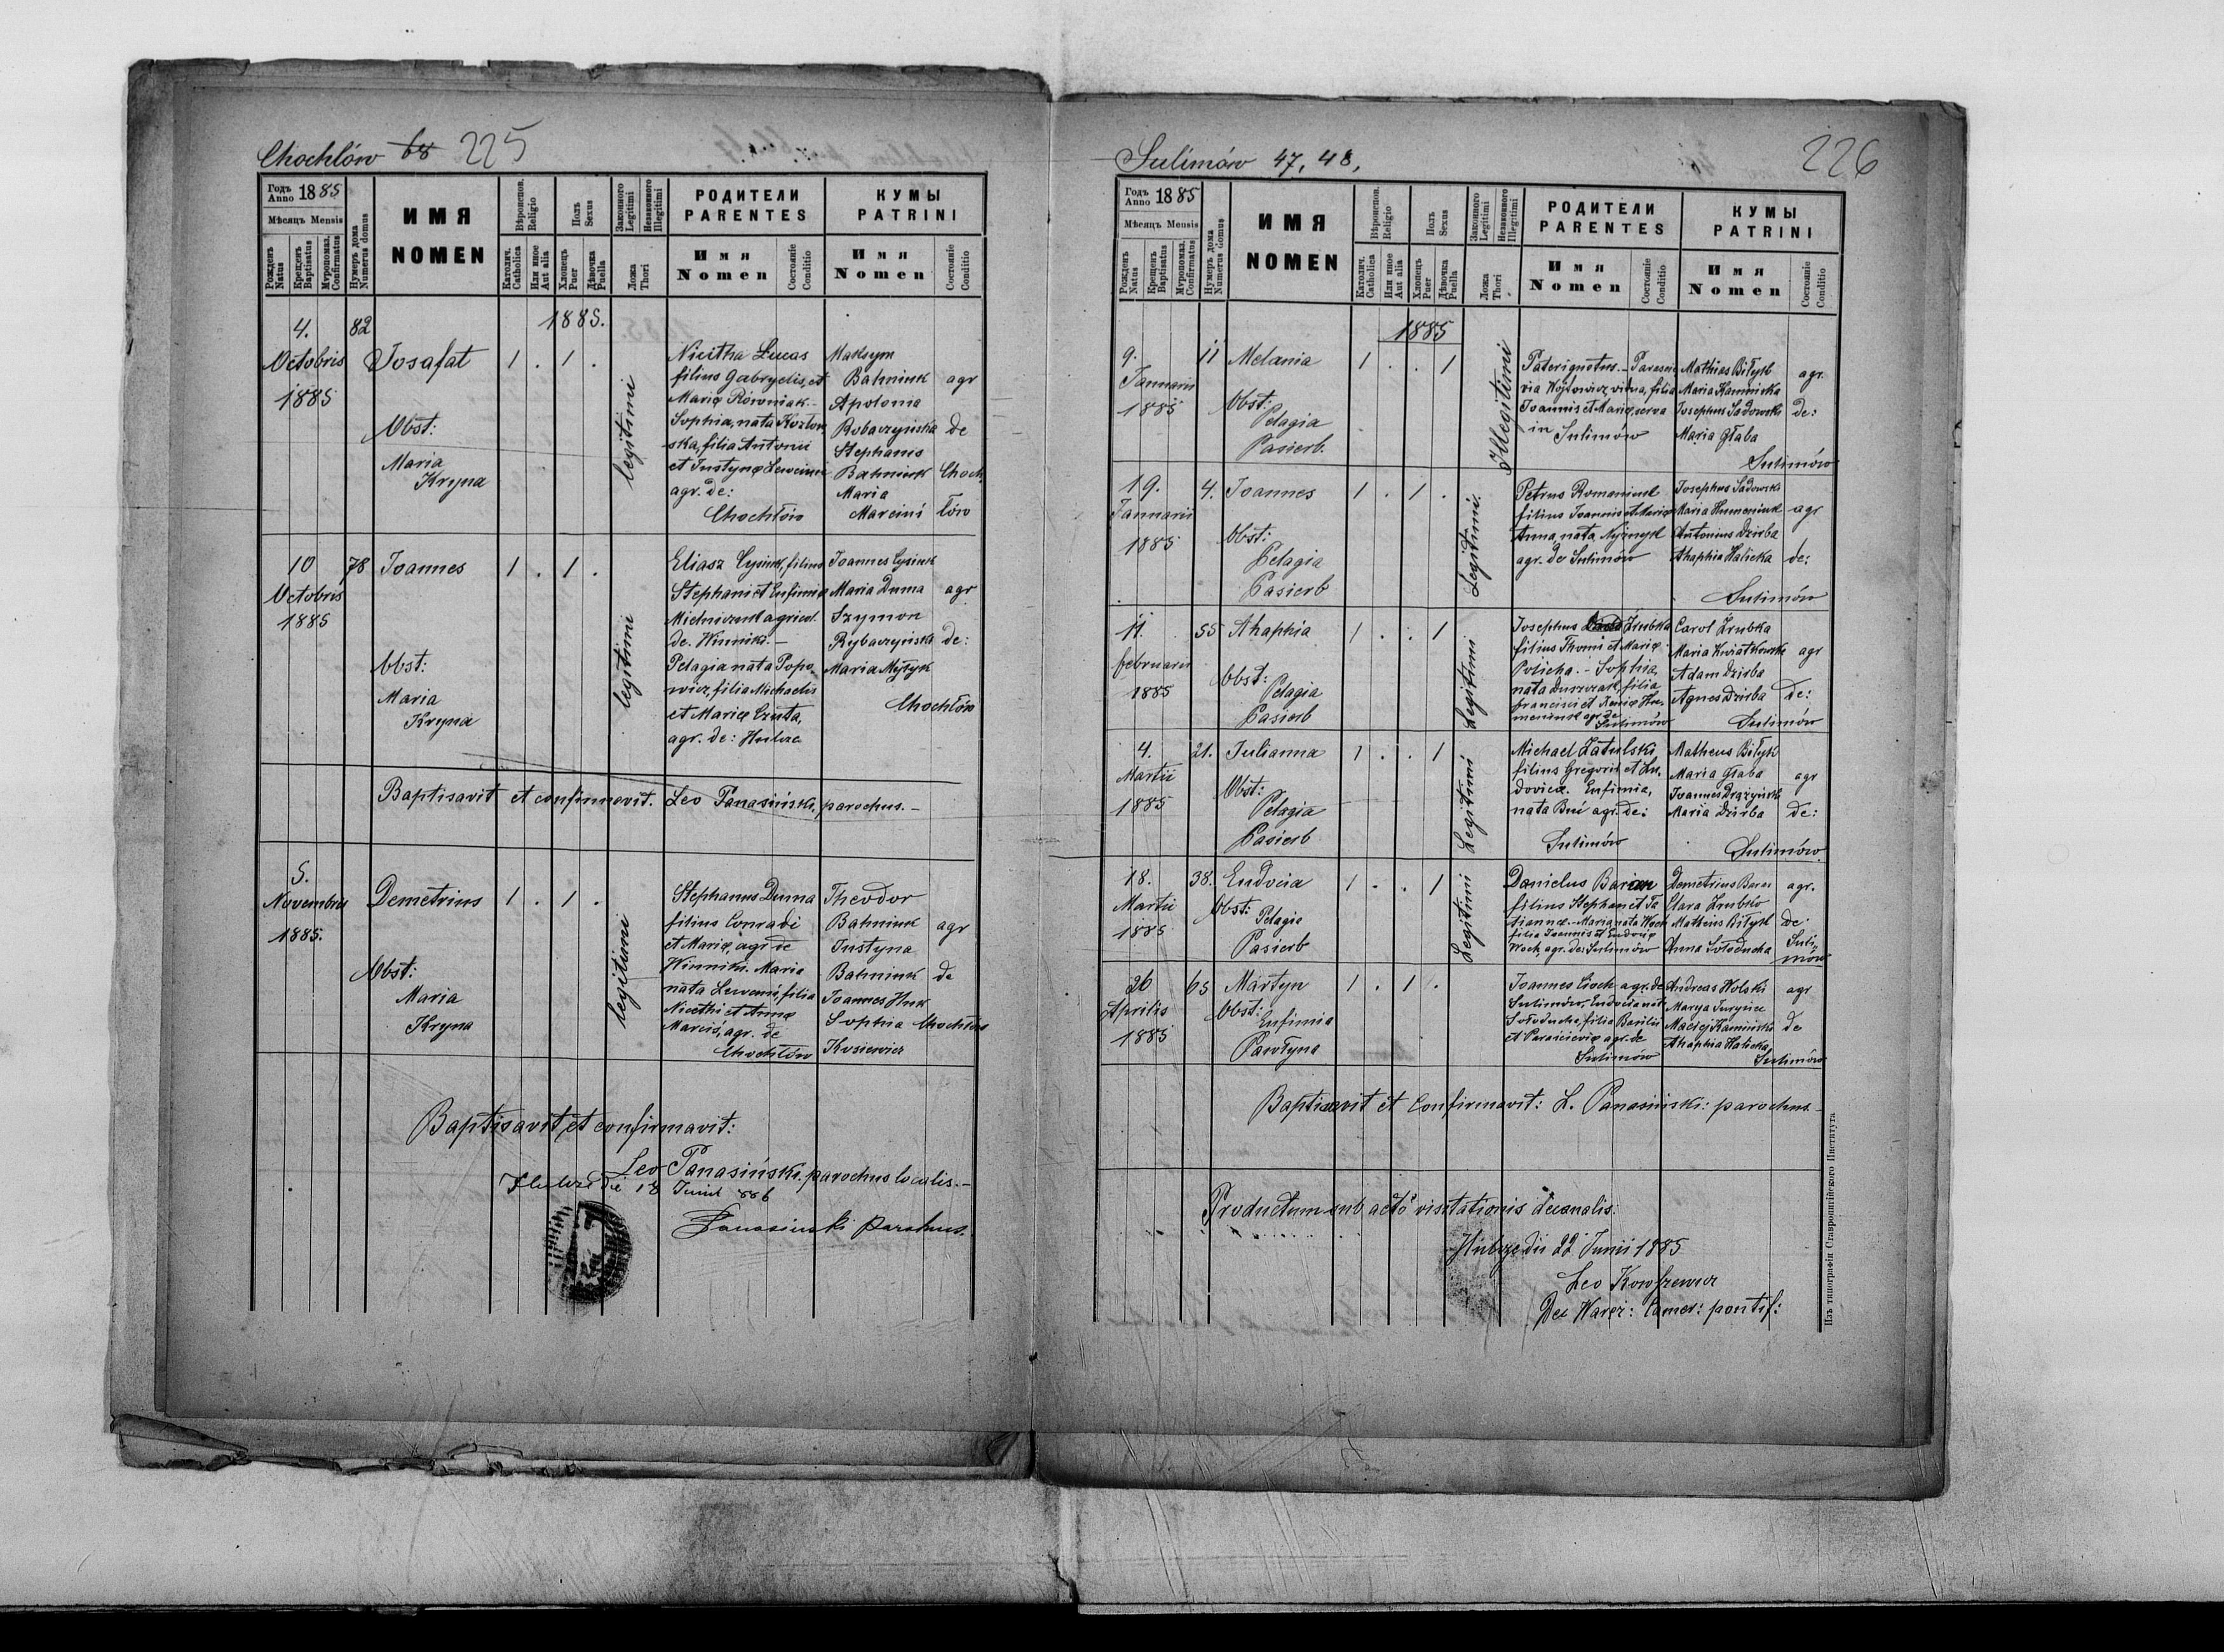 Chochłów 68 225
Годъ Anno 1885
Мѣсяцъ Mensis
Рожденъ Natus
Крещенъ Baptisatus
Муропомаз. Confirmatus
Нумеръ дома Numerus domus
ИМЯ
NOMEN
Вѣроиспов. Religio
Католич. Catholica
Или иное Aut alia
Полъ Sexus
Хлопецъ Puer
Дѣвочка Puella
Законного Legitimi
Незаконного Illegitimi
Ложа Thori
РОДИТЕЛИ
PARENTES
Имя
Nomen
Состояніе Conditio
КУМЫ
PATRINI
Имя
Nomen
Состояніе Conditio
1885.
4. 82
Octobris
1885
Josafat 1 . 1 .
Obst:
Maria
Kryna
legitimi
Nicitha Lucas
filius Gabryelis, et
Mariæ Równiak.-
Sophia, nata Kozłow
ska, filia Antonii
et Justynæ
agr. de:
Chochłów
Maksym
Bahniuk agr
Apolonia
Robaczyńska de
Stephanus
Bahniuk Choch
Maria
Marcini łów
10 78 Joannes 1 . 1 .
Octobris
1885
Obst:
Maria
Kryna
legitimi
Eliasz Cysiuk, filius
Stephani et Eufimiæ
Mielniczuk agricol.
de. Winniki.-
Pelagia nata Popo
wicz, filia Michaelis
et Mariæ
agr. de: Hulcze
Joannes Cysiuk
Maria Duma agr
Szymon
Rybaczyńska de:
Maria Mytyk
Chochłów
Baptisavit et confirmavit. Leo Panasiński, parochus.-
5.
Novembris Demetrius 1 . 1 .
1885.
Obst:
Maria
Kryna
legitimi
Stephanus Duma
filius Conradi
et Mariæ, agr. de
Winniki. Maria
nata filia
Nicithi et Annæ
agr. de
Chochłów
Theodor
Bahniuk agr
Justyna
Bahniuk de
Joannes Huk
Sophia Chochłów
Kusiewicz
Baptisavit et confirmavit:
Leo Panasiński. parochus localis.-
die 18 Junii 886
Panasinski parochus.
Sulimów 47, 48, 226
Годъ Anno 1885
Мѣсяцъ Mensis
Рожденъ Natus
Крещенъ Baptisatus
Муропомаз. Confirmatus
Нумеръ дома Numerus domus
ИМЯ
NOMEN
Вѣроиспов. Religio
Католич. Catholica
Или иное Aut alia
Полъ Sexus
Хлопецъ Puer
Дѣвочка Puella
Законного Legitimi
Незаконного Illegitimi
Ложа Thori
РОДИТЕЛИ
PARENTES
Имя
Nomen
Состояніе Conditio
КУМЫ
PATRINI
Имя
Nomen
Состояніе Conditio
1885
9. 11 Melania 1 . . 1
Januarii
1885
Obst:
Pelagia
Pasierb.
Illegitimi
Pater ignotus.- Parasce
via Wójtowicz, vidua, filia
Joannis et Mariæ, serva
in Sulimów
Mathias Biłyk agr.
Maria Kaminska
Josephus Sadowski de:
Maria Głaba
Sulimów
19. 4. Joannes 1 . 1 .
Januarii
1885
Obst:
Pelagia
Pasierb
Legitimi.
Petrus Romaniuk
filius Joannis et Mariæ
Anna, nata
agr. de Sulimów
Josephus Sadowski
Maria Humeniuk agr
Antonius Dzirba
Ahaphia Halicka de:
Sulimów
11. 55 Ahaphia 1 . . 1
februarii
1885
Obst:
Pelagia
Pasierb
Legitimi
Josephus Zrubka
filius Thomi et Mariæ
Policha.- Sophia,
nata Duszczak, filia
francisci et Xeniæ Hu
meniuk agr. de
Sulimów
Carol Zrubka
Maria Kwiatkowski agr
Adam Dzirba
Agnes Dzirba de:
Sulimów
4. 21. Julianna 1 . . 1
Martii
1885
Obst:
Pelagia
Pasierb
Legitimi
Michael Zatulski
filius Gregorii et Lu
dovicæ. Eufimia,
nata agr. de:
Sulimów
Matheus Biłyk
Maria Głaba agr
Joannes
Maria Dzirba de:
Sulimów.
18. 38. Eudocia 1 . . 1
Martii
1885
Obst: Pelagia
Pasierb
Legitimi
Danielus Baran
filius Stephani et Ta
tiannæ.- Maria nata Woch
filia Joannis et Eudociæ
Woch, agr. de: Sulimów
Demetrius Baran agr.
Clara Zrubko
Matheus Biłyk de:
Anna Sołoducha Suli
mów
26 65 Martyn 1 . 1 .
Aprilis
1885
Obst:
Eufimia
Pawłyna
Joannes Cioch agr. de
Sulimów, Eudocia nata
Sołoducha, filia Basilii
et agr. de
Sulimów
Andreas Wolski agr
Marya
Maciej Kamiński de
Ahaphia Halicka
Sulimów
Baptisavit et Confirmavit: L. Panasiński: parochus.-
Productum sub actô visitationis decanalis.
die 22 Junii 1885
Leo
Dec Warez: Camer: pontif:
Изъ типографіи Ставропигійского Института